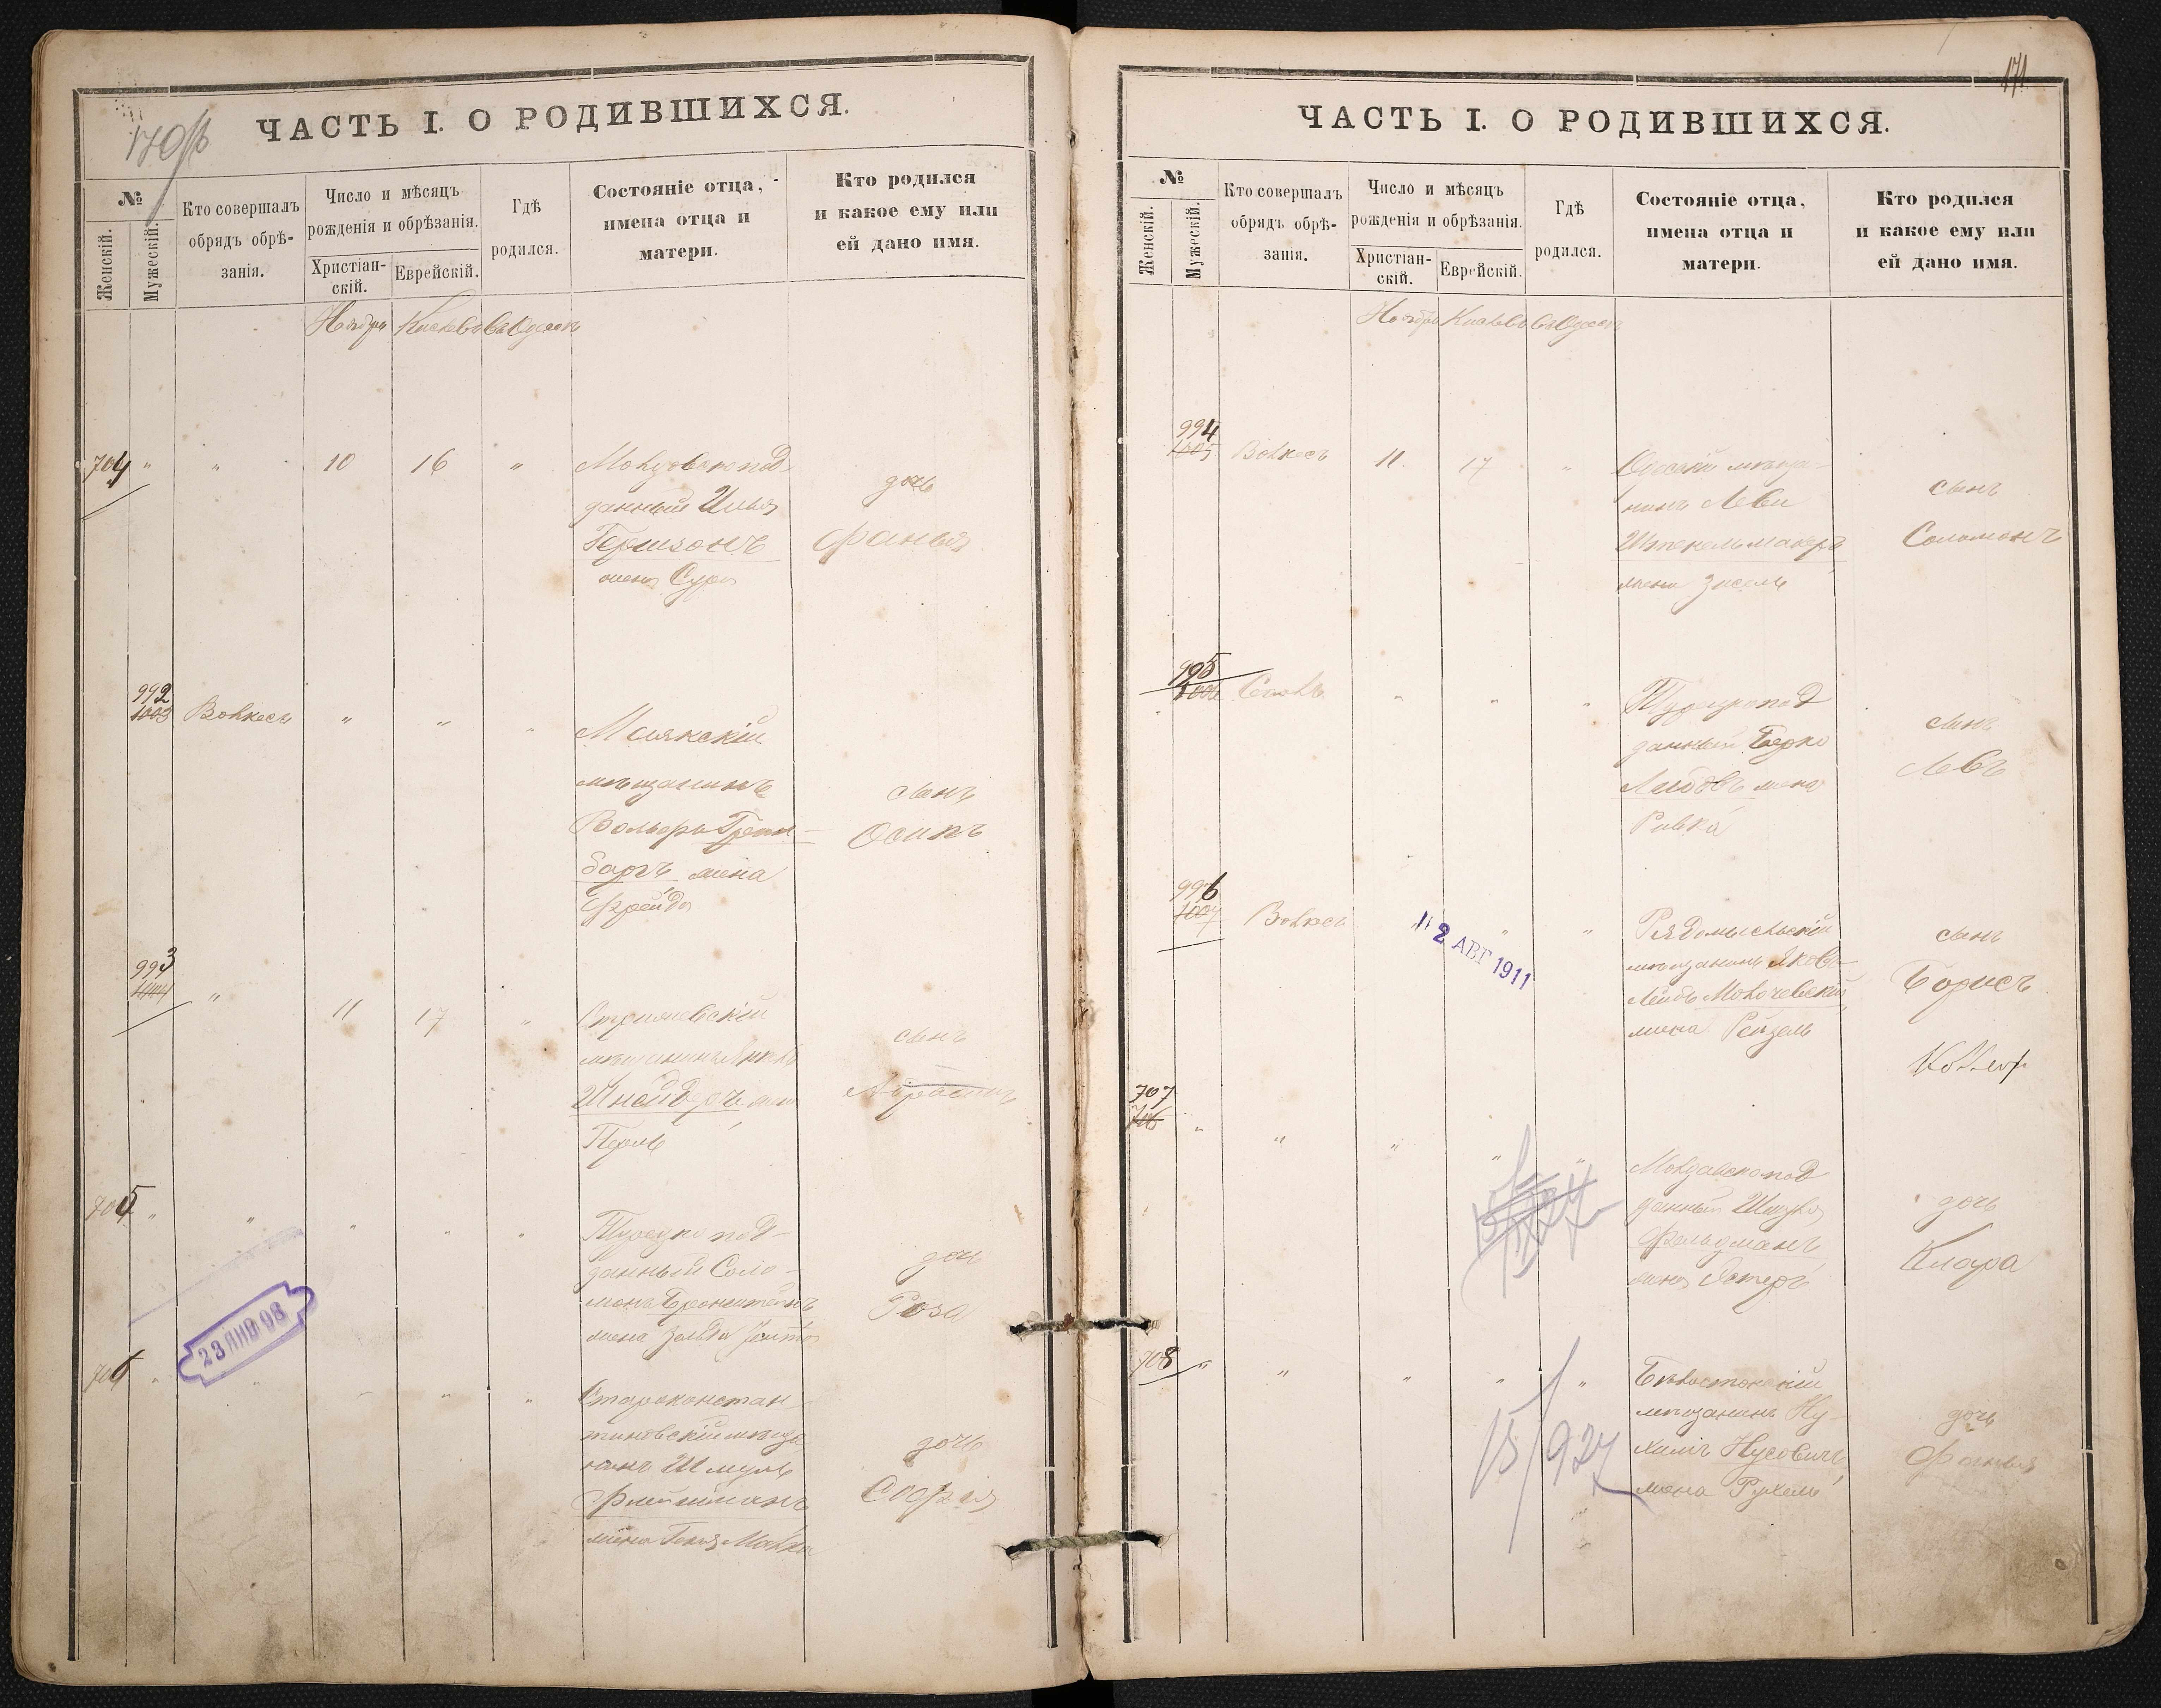 170об
ЧАСТЬ I. О РОДИВШИХСЯ.
№
Женскій.
Мужескій.
Кто совершалъ
обрядъ обрѣ-
занія.
Число и мѣсяцъ
рожденія и обрѣзанія.
Христіан-
скій.
Еврейскій.
Гдѣ
родился.
Состояніе отца,
имена отца и
матери.
Кто родился
и какое ему или
ей дано имя.
Ноябрь Кислевъ въ Одессѣ
704 " " 10 16 "
Молдавскопод-
данный Илья
Гершзонъ
жена Сура
дочь
Фаня
992
1003 Волкесъ " " "
Маякскій
мѣщанинъ
Вольфъ Грин-
баргъ жена
Фрейда
сынъ
Осипъ
993
1004 " 11 17 "
мѣщанинъ Янкель
Шнейдеръ жена
Перль
сынъ
Абрамъ
705 " " " " "
Турецкопод-
данный Соло-
монъ Бронштейнъ
жена Зельда
дочь
Роза
23 ЯНВ 98
706 " " " " "
Староконстан-
тиновскій мѣща-
нинъ Шмуль
Флейшманъ
жена Геня Малка
дочь
Софія
171
ЧАСТЬ I. О РОДИВШИХСЯ.
№
Женскій.
Мужескій.
Кто совершалъ
обрядъ обрѣ-
занія.
Число и мѣсяцъ
рожденія и обрѣзанія.
Христіан-
скій.
Еврейскій.
Гдѣ
родился.
Состояніе отца,
имена отца и
матери.
Кто родился
и какое ему или
ей дано имя.
Ноябрь Кислевъ въ Одессѣ
994
1005 Волкесъ 11 17 "
Одесскій мѣща-
нинъ Леви
Штекельмахеръ
жена Зисель
сынъ
Соломонъ
995
1006 " " "
Турецкопод-
данный Берко
жена
Ривка
сынъ
Левъ
996
1007 Волкесъ " " "
2 АВГ 1911
Радомысльскій
мѣщанинъ Яковъ-
Лейбъ
жена Рейзель
сынъ
Борисъ
707
706 " " " " "
Молдавскопод-
данный
Фельдманъ
жена Эстеръ
дочь
Клара
708 " " " " "
Бѣлостокскій
мѣщанинъ Ну-
химъ Нусовичъ
жена Рухель
дочь
Фаня
15/927